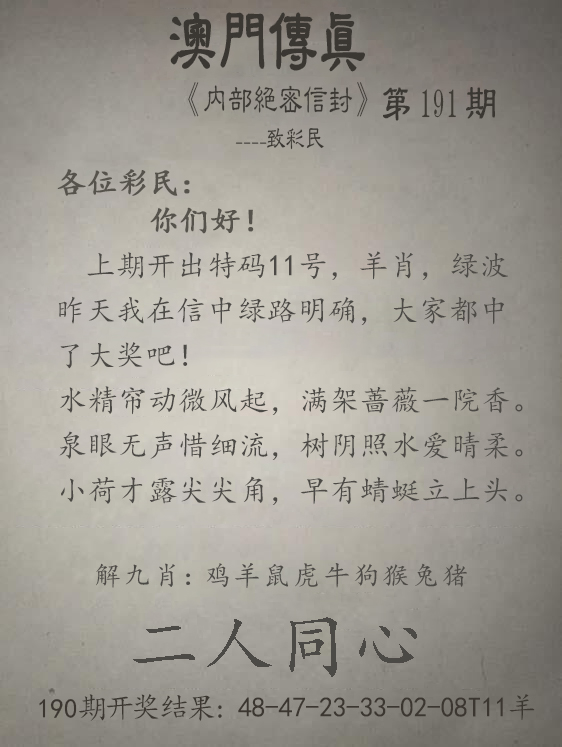 澳門傳眞
《内部絕密信封》第191期
----致彩民
各位彩民：
你们好！
上期开出特码11号，羊肖，绿波
昨天我在信中绿路明确，大家都中
了大奖吧！
水精帘动微风起，满架蔷薇一院香。
泉眼无声惜细流，树阴照水爱晴柔。
小荷才露尖尖角，早有蜻蜓立上头。
解九肖：鸡羊鼠虎牛狗猴兔猪
二人同心
190期开奖结果：48-47-23-33-02-08T11羊